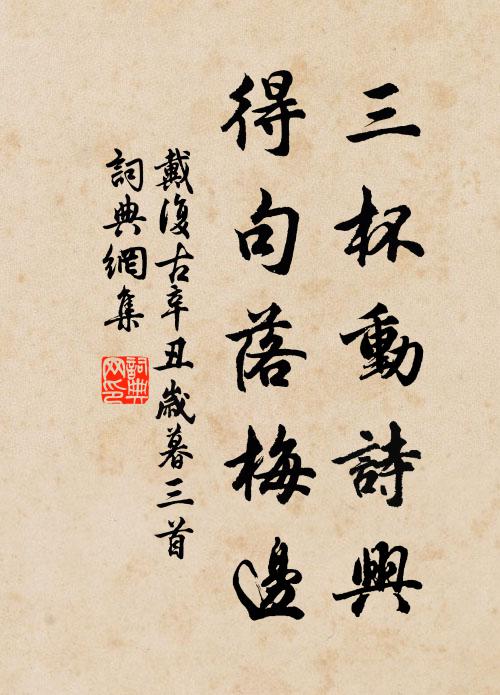 三杯動詩興
得句落梅邊
戴復古辛丑歲暮三首
詞典網集
詞典
网印